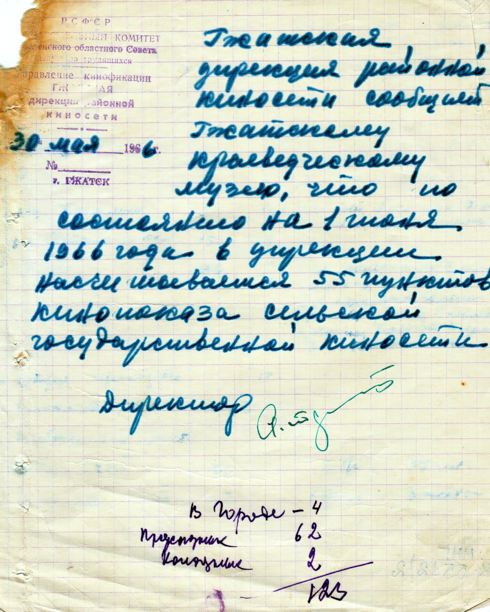 РСФСР
КОМИТЕТ
областного Совета
трудящихся
Управление кинофикации
дирекция районной
киносети
30 мая 1966 г.
№
г. ГЖАТСК
Гжатская
дирекция районной
киносети сообщает
Гжатскому
краеведческому
музею, что по
состоянию на 1 июня
1966 года в дирекции
насчитывается 55 пунктов
кинопоказа сельской
государственной киносети
Директор
В городе - 4
62
2
123